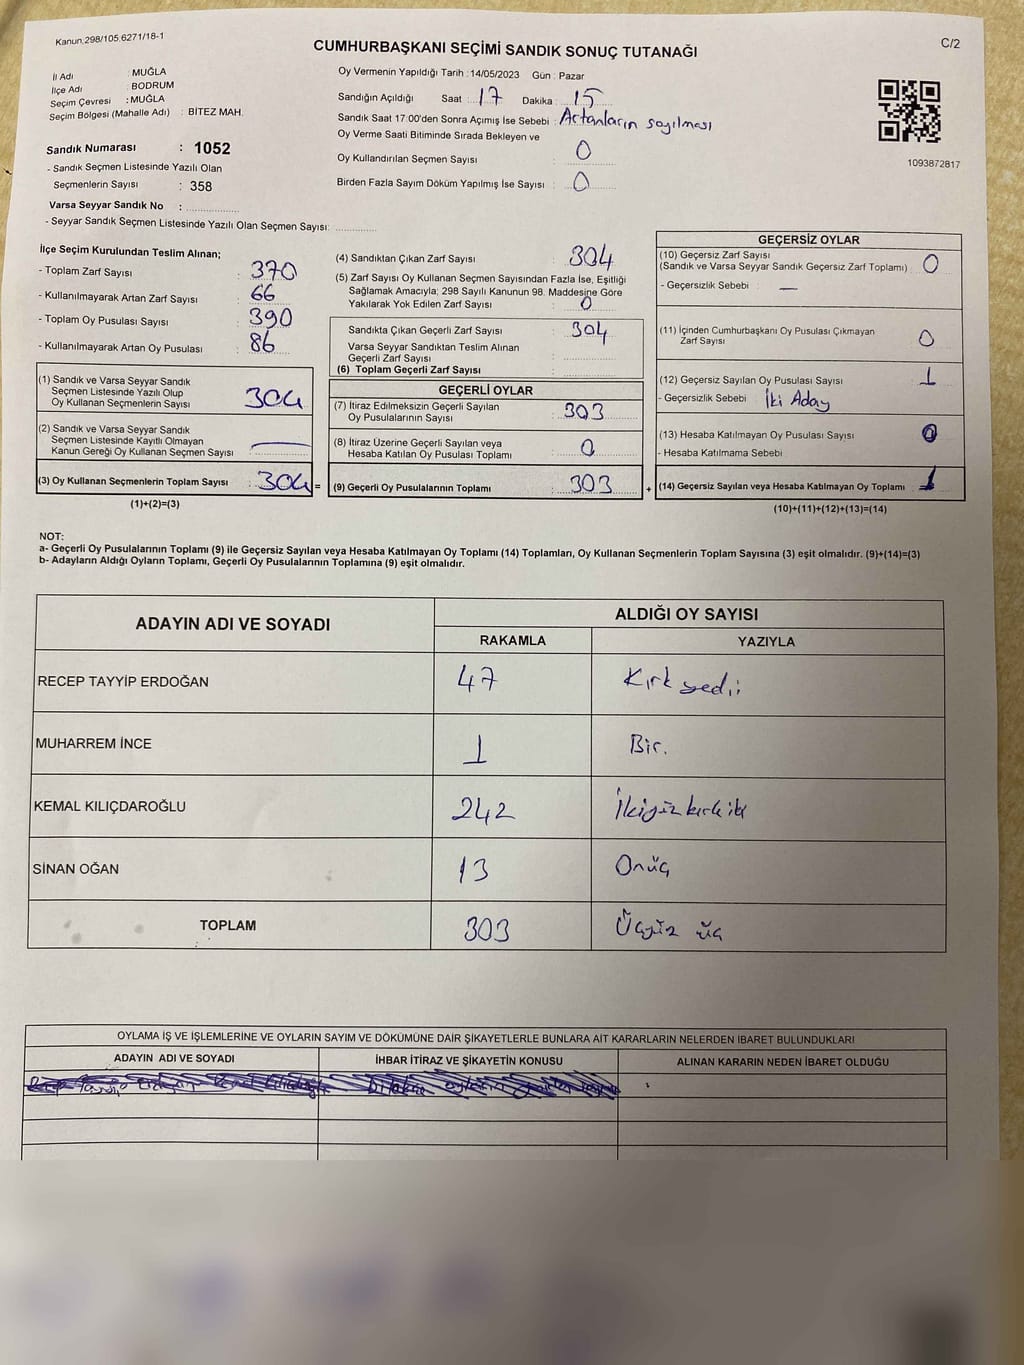 Kanun.298/105,6271/18-1
C/2
CUMHURBAŞKANI SEÇİMİ SANDIK SONUÇ TUTANAĞI
İl Adı : MUĞLA
İlçe Adı : BODRUM
Seçim Çevresi : MUĞLA
Seçim Bölgesi (Mahalle Adı) : BİTEZ MAH.
Sandık Numarası : 1052
- Sandık Seçmen Listesinde Yazılı Olan
Seçmenlerin Sayısı : 358
Varsa Seyyar Sandık No :
- Seyyar Sandık Seçmen Listesinde Yazılı Olan Seçmen Sayısı:
Oy Vermenin Yapıldığı Tarih : 14/05/2023 Gün : Pazar
Sandığın Açıldığı Saat : 17 Dakika : 15
Sandık Saat 17:00'den Sonra Açımış İse Sebebi : Artanların sayılması
Oy Verme Saati Bitiminde Sırada Bekleyen ve
Oy Kullandırılan Seçmen Sayısı : 0
Birden Fazla Sayım Döküm Yapılmış İse Sayısı : 0
1093872817
İlçe Seçim Kurulundan Teslim Alınan;
- Toplam Zarf Sayısı : 370
- Kullanılmayarak Artan Zarf Sayısı : 66
- Toplam Oy Pusulası Sayısı : 390
- Kullanılmayarak Artan Oy Pusulası : 86
(1) Sandık ve Varsa Seyyar Sandık
Seçmen Listesinde Yazılı Olup
Oy Kullanan Seçmenlerin Sayısı : 304
(2) Sandık ve Varsa Seyyar Sandık
Seçmen Listesinde Kayıtlı Olmayan
Kanun Gereği Oy Kullanan Seçmen Sayısı :
(3) Oy Kullanan Seçmenlerin Toplam Sayısı : 304 =
(1)+(2)=(3)
(4) Sandıktan Çıkan Zarf Sayısı : 304
(5) Zarf Sayısı Oy Kullanan Seçmen Sayısından Fazla İse, Eşitliği
Sağlamak Amacıyla; 298 Sayılı Kanunun 98. Maddesine Göre
Yakılarak Yok Edilen Zarf Sayısı : 0
Sandıkta Çıkan Geçerli Zarf Sayısı : 304
Varsa Seyyar Sandıktan Teslim Alınan
Geçerli Zarf Sayısı :
(6) Toplam Geçerli Zarf Sayısı :
GEÇERLİ OYLAR
(7) İtiraz Edilmeksizin Geçerli Sayılan
Oy Pusulalarının Sayısı : 303
(8) İtiraz Üzerine Geçerli Sayılan veya
Hesaba Katılan Oy Pusulası Toplamı : 0
(9) Geçerli Oy Pusulalarının Toplamı : 303 +
GEÇERSİZ OYLAR
(10) Geçersiz Zarf Sayısı
(Sandık ve Varsa Seyyar Sandık Geçersiz Zarf Toplamı) : 0
- Geçersizlik Sebebi : —
(11) İçinden Cumhurbaşkanı Oy Pusulası Çıkmayan
Zarf Sayısı : 0
(12) Geçersiz Sayılan Oy Pusulası Sayısı : 1
- Geçersizlik Sebebi : İki Aday
(13) Hesaba Katılmayan Oy Pusulası Sayısı : 0
- Hesaba Katılmama Sebebi
(14) Geçersiz Sayılan veya Hesaba Katılmayan Oy Toplamı : 1
(10)+(11)+(12)+(13)=(14)
NOT:
a- Geçerli Oy Pusulalarının Toplamı (9) ile Geçersiz Sayılan veya Hesaba Katılmayan Oy Toplamı (14) Toplamları, Oy Kullanan Seçmenlerin Toplam Sayısına (3) eşit olmalıdır. (9)+(14)=(3)
b- Adayların Aldığı Oyların Toplamı, Geçerli Oy Pusulalarının Toplamına (9) eşit olmalıdır.
ADAYIN ADI VE SOYADI
ALDIĞI OY SAYISI
RAKAMLA YAZIYLA
RECEP TAYYİP ERDOĞAN 47 Kırk yedi
MUHARREM İNCE 1 Bir.
KEMAL KILIÇDAROĞLU 242 İkiyüzkırkiki
SİNAN OĞAN 13 Onüç
TOPLAM 303 Üçyüz üç
OYLAMA İŞ VE İŞLEMLERİNE VE OYLARIN SAYIM VE DÖKÜMÜNE DAİR ŞİKAYETLERLE BUNLARA AİT KARARLARIN NELERDEN İBARET BULUNDUKLARI
ADAYIN ADI VE SOYADI İHBAR İTİRAZ VE ŞİKAYETİN KONUSU ALINAN KARARIN NEDEN İBARET OLDUĞU